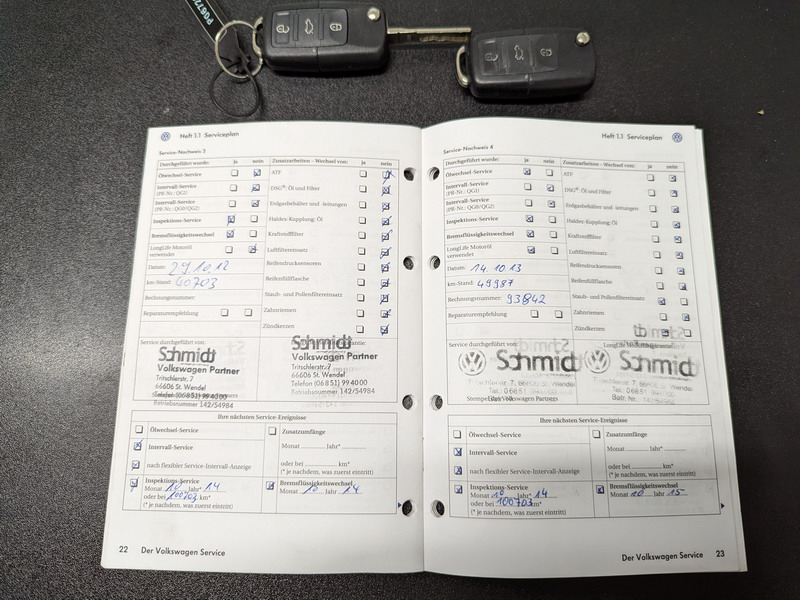 PG672
Heft 1.1 Serviceplan
Service-Nachweis 3
Durchgeführt wurde: ja nein
Ölwechsel-Service
Intervall-Service
(PR-Nr.: QG1)
Intervall-Service
(PR-Nr.: QG0/QG2)
Inspektions-Service
Bremsflüssigkeitswechsel
LongLife Motoröl
verwendet
Datum: 29.10.12
km-Stand: 40703
Rechnungsnummer:
Reparaturempfehlung
Zusatzarbeiten - Wechsel von: ja nein
ATF
DSG®: Öl und Filter
Erdgasbehälter und -leitungen
Haldex-Kupplung: Öl
Kraftstofffilter
Luftfiltereinsatz
Reifendrucksensoren
Reifenfüllflasche
Staub- und Pollenfiltereinsatz
Zahnriemen
Zündkerzen
Service durchgeführt von:
Schmidt
Volkswagen Partner
Tritschlerstr. 7
66606 St. Wendel
Telefon (0 68 51) 99 40 00
Betriebsnummer 142/54984
Schmidt
Volkswagen Partner
Tritschlerstr. 7
66606 St. Wendel
Telefon (0 68 51) 99 40 00
Betriebsnummer 142/54984
Ihre nächsten Service-Ereignisse
Ölwechsel-Service
Intervall-Service
nach flexibler Service-Intervall-Anzeige
Inspektions-Service
Monat 10 Jahr* 14
oder bei 100703 km*
(* je nachdem, was zuerst eintritt)
Zusatzumfänge
Monat Jahr*
oder bei km*
(* je nachdem, was zuerst eintritt)
Bremsflüssigkeitswechsel
Monat 10 Jahr 14
22 Der Volkswagen Service
Heft 1.1 Serviceplan
Service-Nachweis 4
Durchgeführt wurde: ja nein
Ölwechsel-Service
Intervall-Service
(PR-Nr.: QG1)
Intervall-Service
(PR-Nr.: QG0/QG2)
Inspektions-Service
Bremsflüssigkeitswechsel
LongLife Motoröl
verwendet
Datum: 14.10.13
km-Stand: 49987
Rechnungsnummer: 93842
Reparaturempfehlung
Zusatzarbeiten - Wechsel von: ja nein
ATF
DSG®: Öl und Filter
Erdgasbehälter und -leitungen
Haldex-Kupplung: Öl
Kraftstofffilter
Luftfiltereinsatz
Reifendrucksensoren
Reifenfüllflasche
Staub- und Pollenfiltereinsatz
Zahnriemen
Zündkerzen
Service durchgeführt von:
Schmidt
Schmidt
Ihre nächsten Service-Ereignisse
Ölwechsel-Service
Intervall-Service
nach flexibler Service-Intervall-Anzeige
Inspektions-Service
Monat 10 Jahr* 14
oder bei 100703 km*
(* je nachdem, was zuerst eintritt)
Zusatzumfänge
Monat Jahr*
oder bei km*
(* je nachdem, was zuerst eintritt)
Bremsflüssigkeitswechsel
Monat 10 Jahr 15
Der Volkswagen Service 23